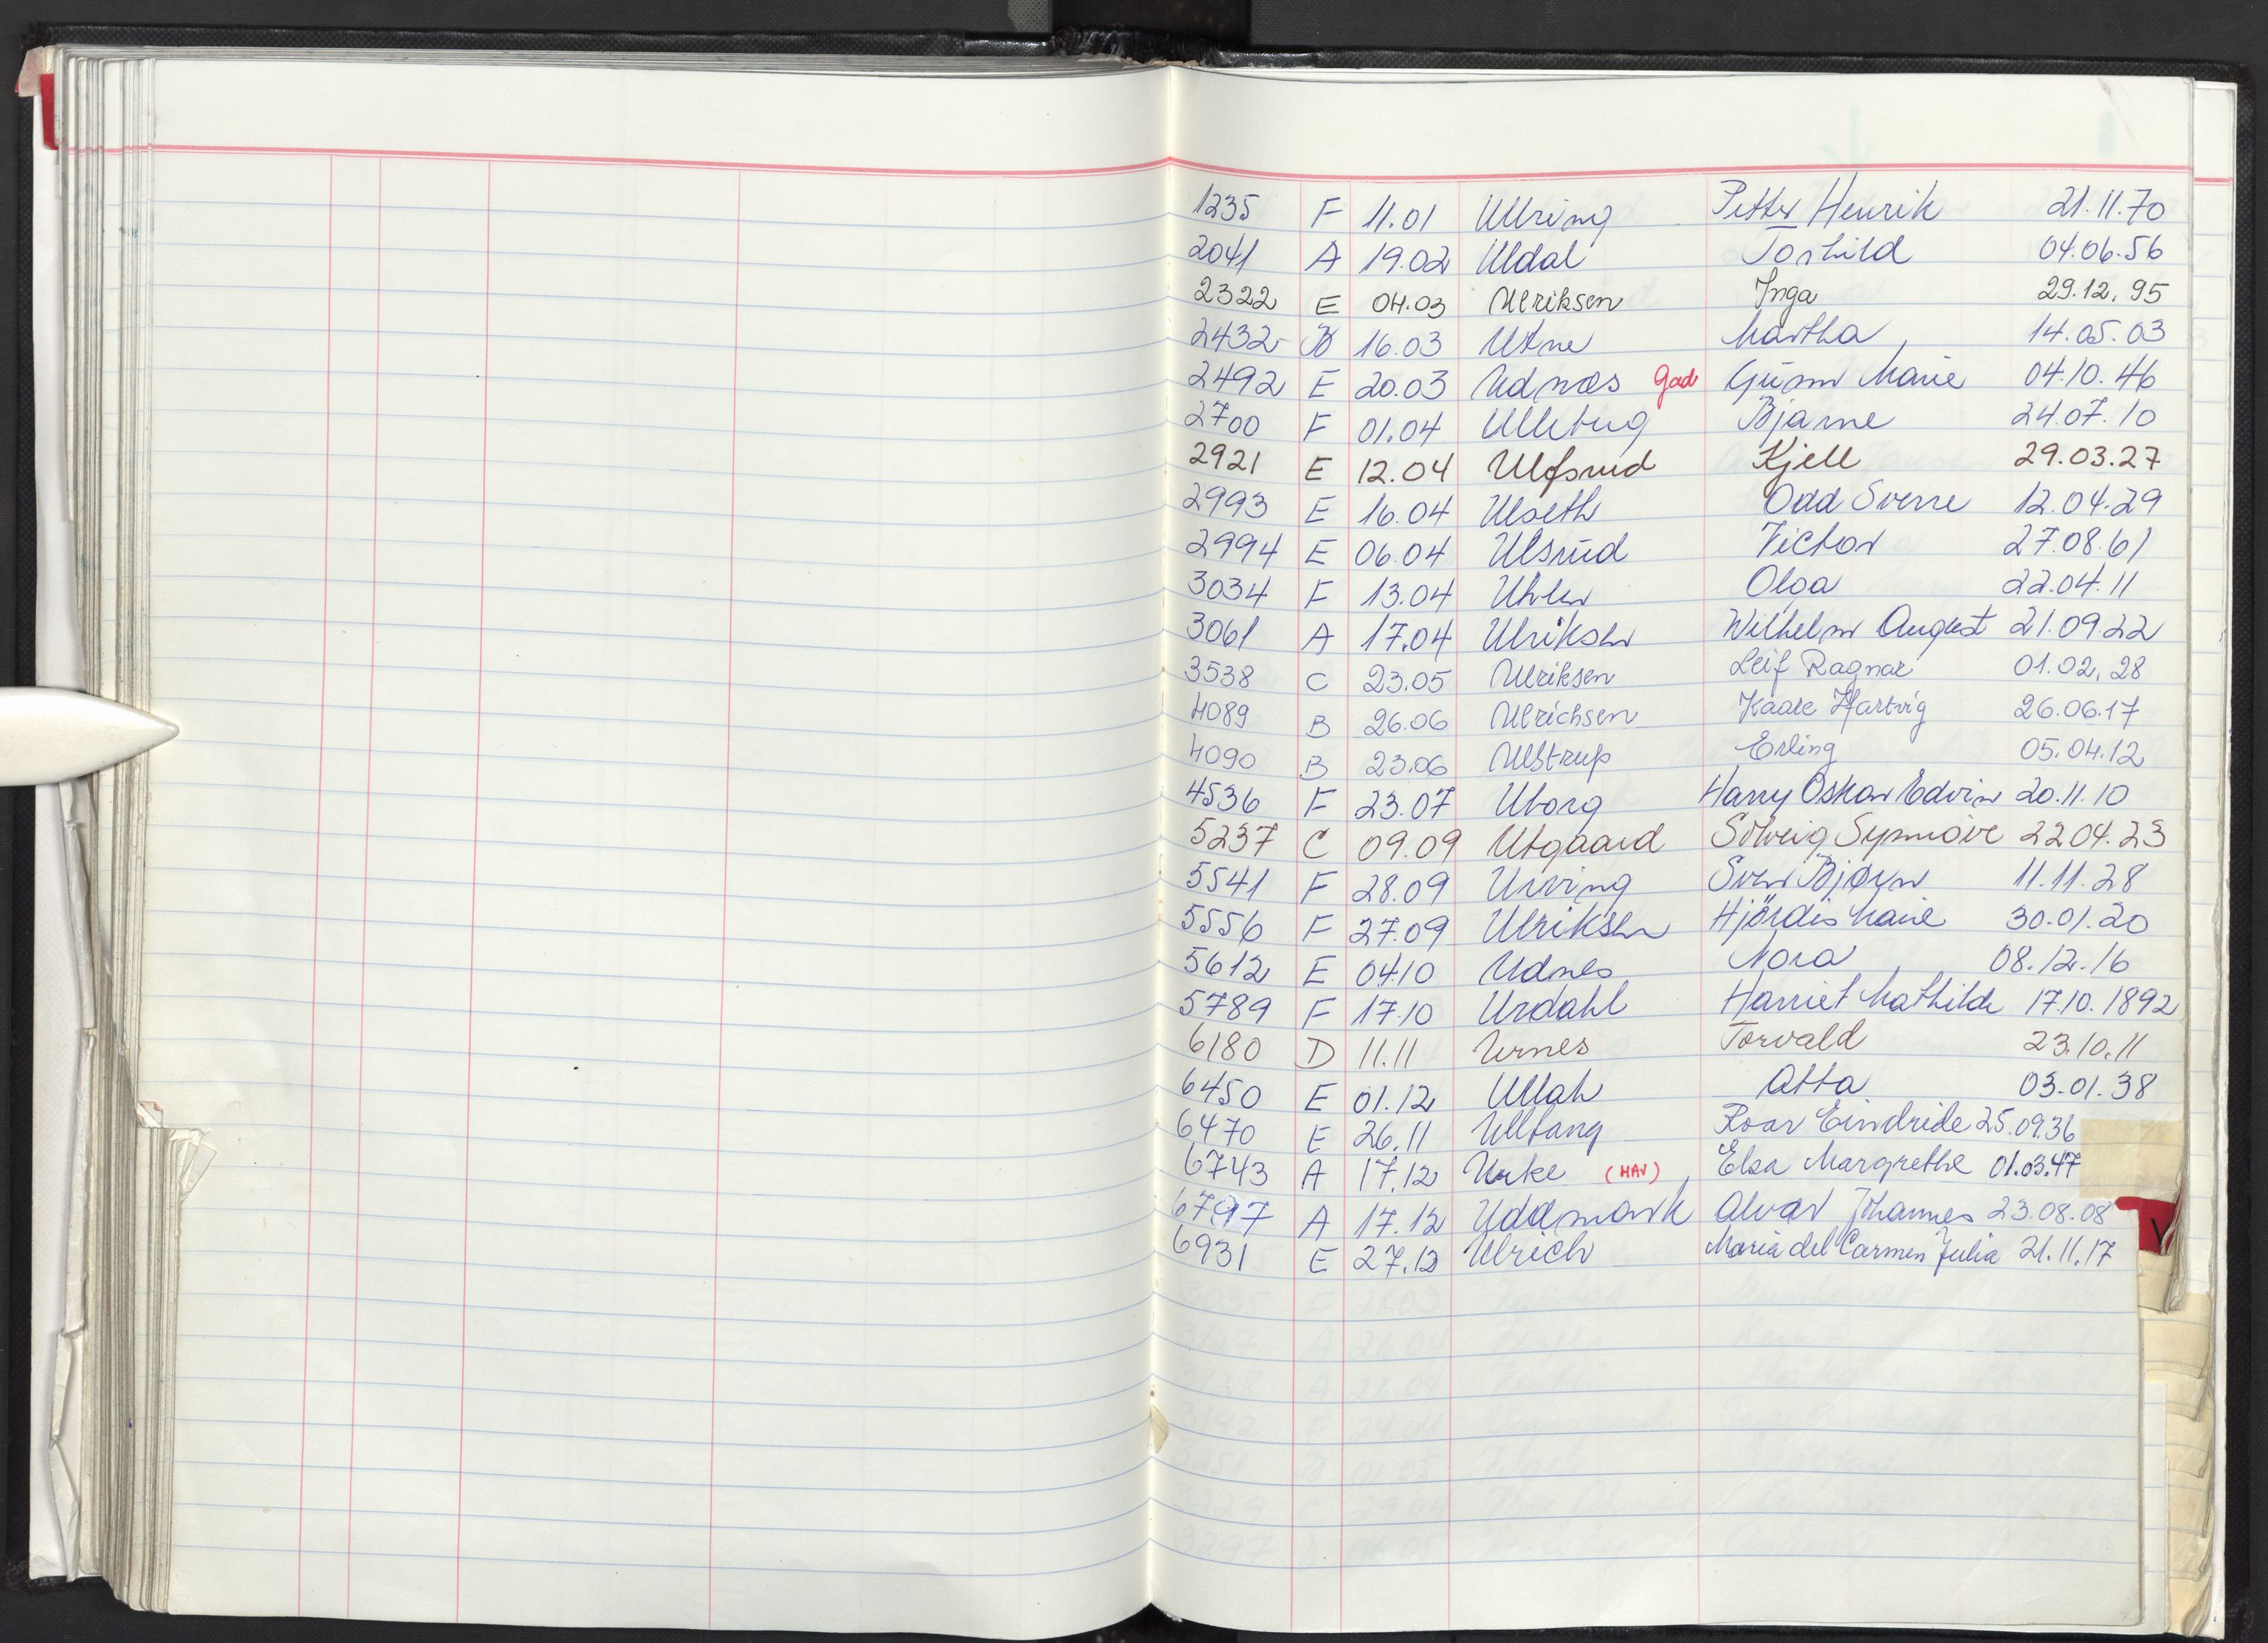 1235 F 11.01 Ullring Petter Henrik 21.11.70
2041 A 19.02 Uldal Torhild 04.06.56
2322 E 04.03 Ulriksen Inga 29.12.95
2432 B 16.03 Utne Martha 14.05.03
2492 E 20.03 Udnæs Gunn Marie 04.10.46
2700 F 01.04 Ulleberg Bjarne 24.07.10
2921 E 12.04 Ulfsrud Kjell 29.03.27
2993 E 16.04 Ulseth Odd Sverre 12.04.29
2994 E 06.04 Ulsrud Victor 27.08.61
3034 F 13.04 Olga 22.04.11
3061 A 17.04 Ulriksen Wilhelm August 21.09.22
3538 C 23.05 Ulriksen Leif Ragnar 01.02.28
4089 B 26.06 Ulrichsen Kaare Hartvig 26.06.17
4090 B 23.06 Ulstrup Erling 05.04.12
4536 F 23.07 Uborg Harry Oskar Edvin 20.11.10
5237 C 09.09 Utgaard Solveig Synnøve 22 04.23
5541 F 28.09 Urving Sven Bjørn 11.11.28
5556 F 27.09 Ulriksen Hjördis Marie 30.01.20
5612 E 04.10 Udnes Nora 08.12.16
5789 F 17.10 Urdahl Harriet Mathilde 17.10.1892
6180 D 11.11 Urnes Torvald 23.10.11
6450 E 01.12 Ullah Atta 03.01.38
6470 E 26.11 Ulltang Roar Eindride 25.09.36
6743 A 17.12 Urke (HAV) Elsa Margrethe 01.03.47
6797 A 17.12 Uddmark Alvar Johannes 23.08.08
6931 E 27.12 Ulrich Maria del Carmen Julia 21.11.17